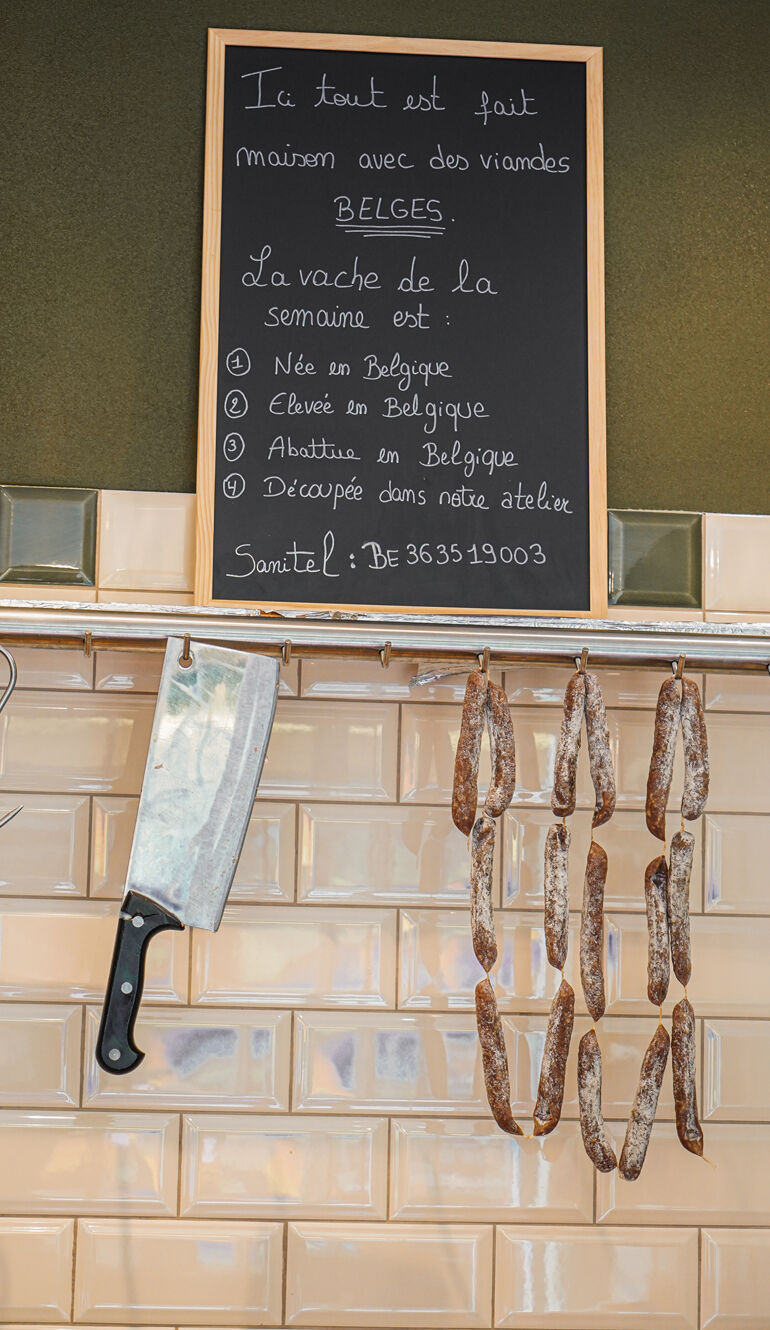 Ici tout est fait
maison avec des viandes
BELGES.
La vache de la
semaine est :
1 Née en Belgique
2 Eleveé en Belgique
3 Abattue en Belgique
4 Découpée dans notre atelier
Sanitel : BE363519003